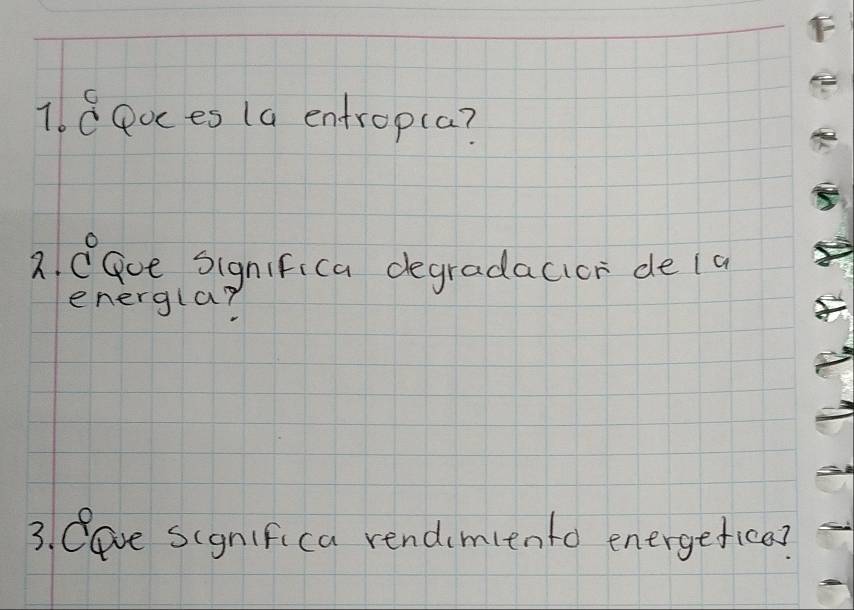 1. ¿Que es la entropia?
2. ¿Que significa degradacion de la
energia?
3. ¿Que significa rendimiento energetico?